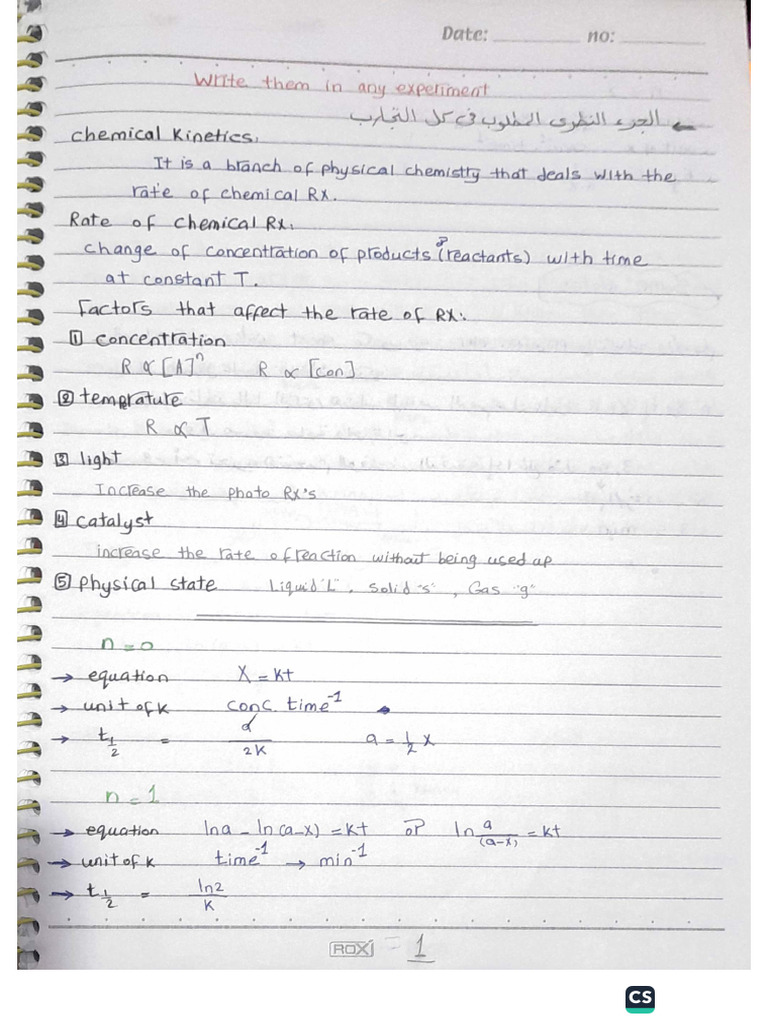 Date: no:
Write them in any experiment
الجزء النظري المطلوب في كل التجارب
chemical Kinetics:
It is a branch of physical chemistry that deals with the
rate of chemical RX.
Rate of chemical RX:
change of concentration of products (reactants) with time
at constant T.
Factors that affect the rate of RX:
1 concentration
R ∝ [A]ⁿ R ∝ [con]
2 temprature
R ∝ T
3 light
Increase the photo RX's
4 catalyst
increase the rate of reaction without being used up
5 physical state Liquid "L", Solid "s", Gas "g"
n = 0
→ equation X = kt
→ unit of k conc. time⁻¹
→ t½ = a/2K a = ½ X
n = 1
→ equation ln a - ln(a-x) = kt or ln a/(a-x) = kt
→ unit of k time⁻¹ → min⁻¹
→ t½ = ln2/K
ROXI = 1
CS